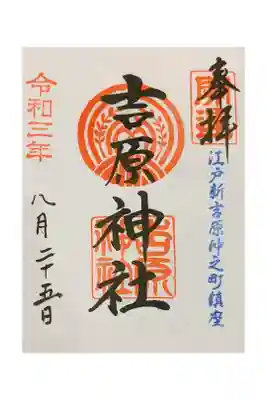 奉拝
江戸新吉原仲之町鎮座
吉原神社
吉原神社
令和三年
八月二十五日